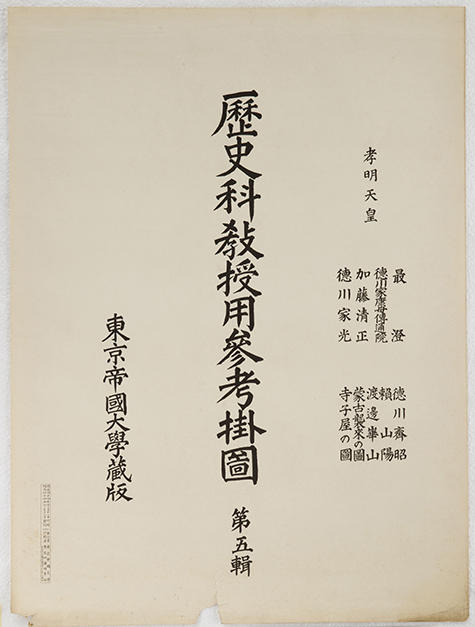 孝明天皇
最澄
徳川家康母傳通院
加藤清正
徳川家光
徳川齊昭
頼山陽
渡邊崋山
蒙古襲來の圖
寺子屋の圖
歷史科敎授用參考掛圖
第五輯
東京帝國大學藏版